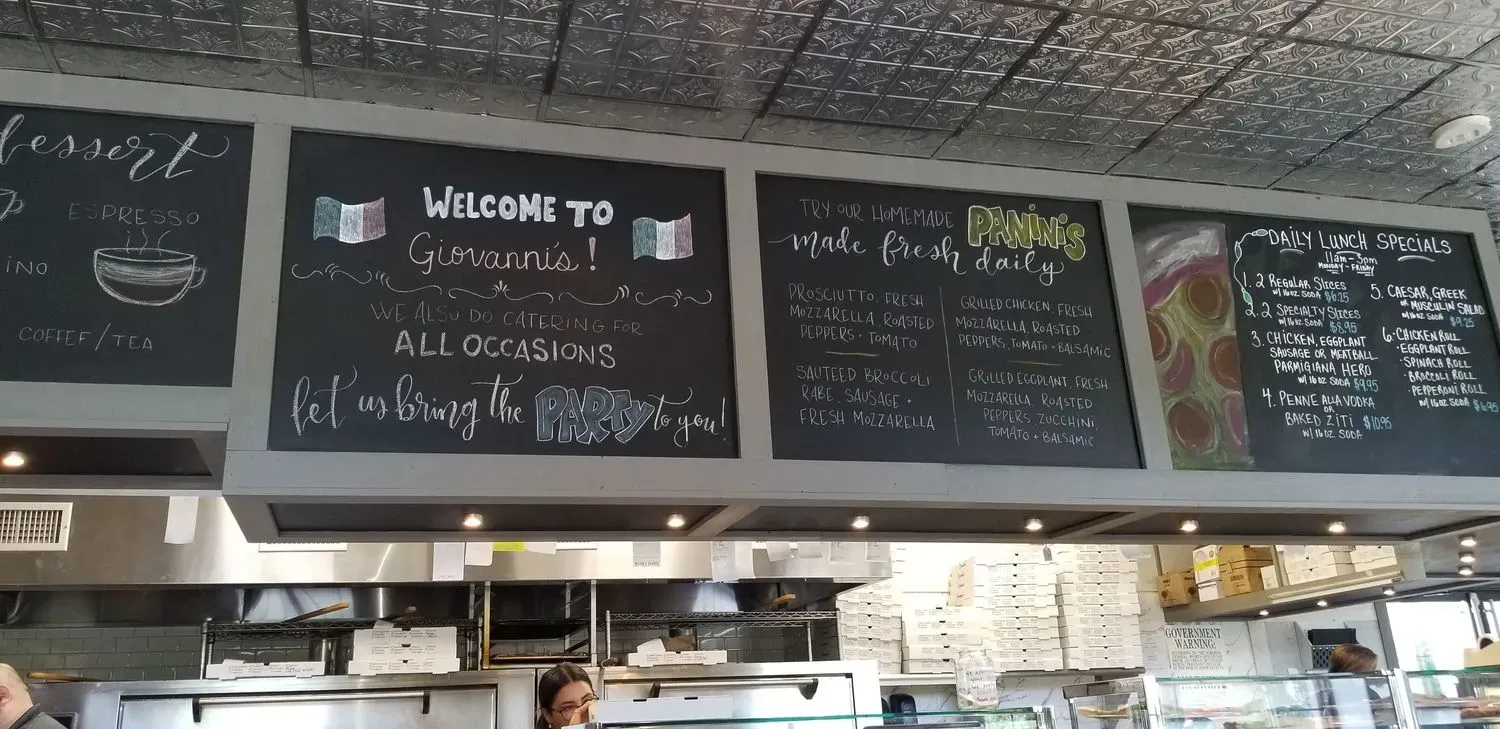 Dessert
ESPRESSO
INO
COFFEF/TEA
WELCOME TO
Giovanni's!
WE ALSO DO CATERING FOR
ALL OCCASIONS
let us bring the PARTY to you!
TRY OUR HOMEMADE PANINIS
made fresh daily
PROSCIUTTO, FRESH
MOZZARELLA, ROASTED
PEPPERS + TOMATO
SAUTEED BROCCOLI
RABE, SAUSAGE +
FRESH MOZZARELLA
GRILLED CHICKEN, FRESH
MOZZARELLA, ROASTED
PEPPERS, TOMATO + BALSAMIC
GRILLED EGGPLANT, FRESH
MOZZARELLA, ROASTED
PEPPERS, ZUCCHINI,
TOMATO + BALSAMIC
DAILY LUNCH SPECIALS
11am-3pm
MONDAY - FRIDAY
1. 2 REGULAR SLICES
W/ 16oz SODA $6.25
2. 2 SPECIALTY SLICES
W/ 16oz SODA $8.95
3. CHICKEN, EGGPLANT
SAUSAGE OR MEATBALL
PARMIGIANA HERO
W/ 16oz SODA $9.95
4. PENNE ALLA VODKA
OR
BAKED ZITI $10.95
W/ 16oz SODA
5. CAESAR, GREEK
OR MUSCULIN SALAD
W/ 16oz SODA $9.25
6. CHICKEN ROLL
• EGGPLANT ROLL
• SPINACH ROLL
• BROCCOLI ROLL
PEPPERONI ROLL
W/ 16oz SODA $6.95
GOVERNMENT
WARNING: